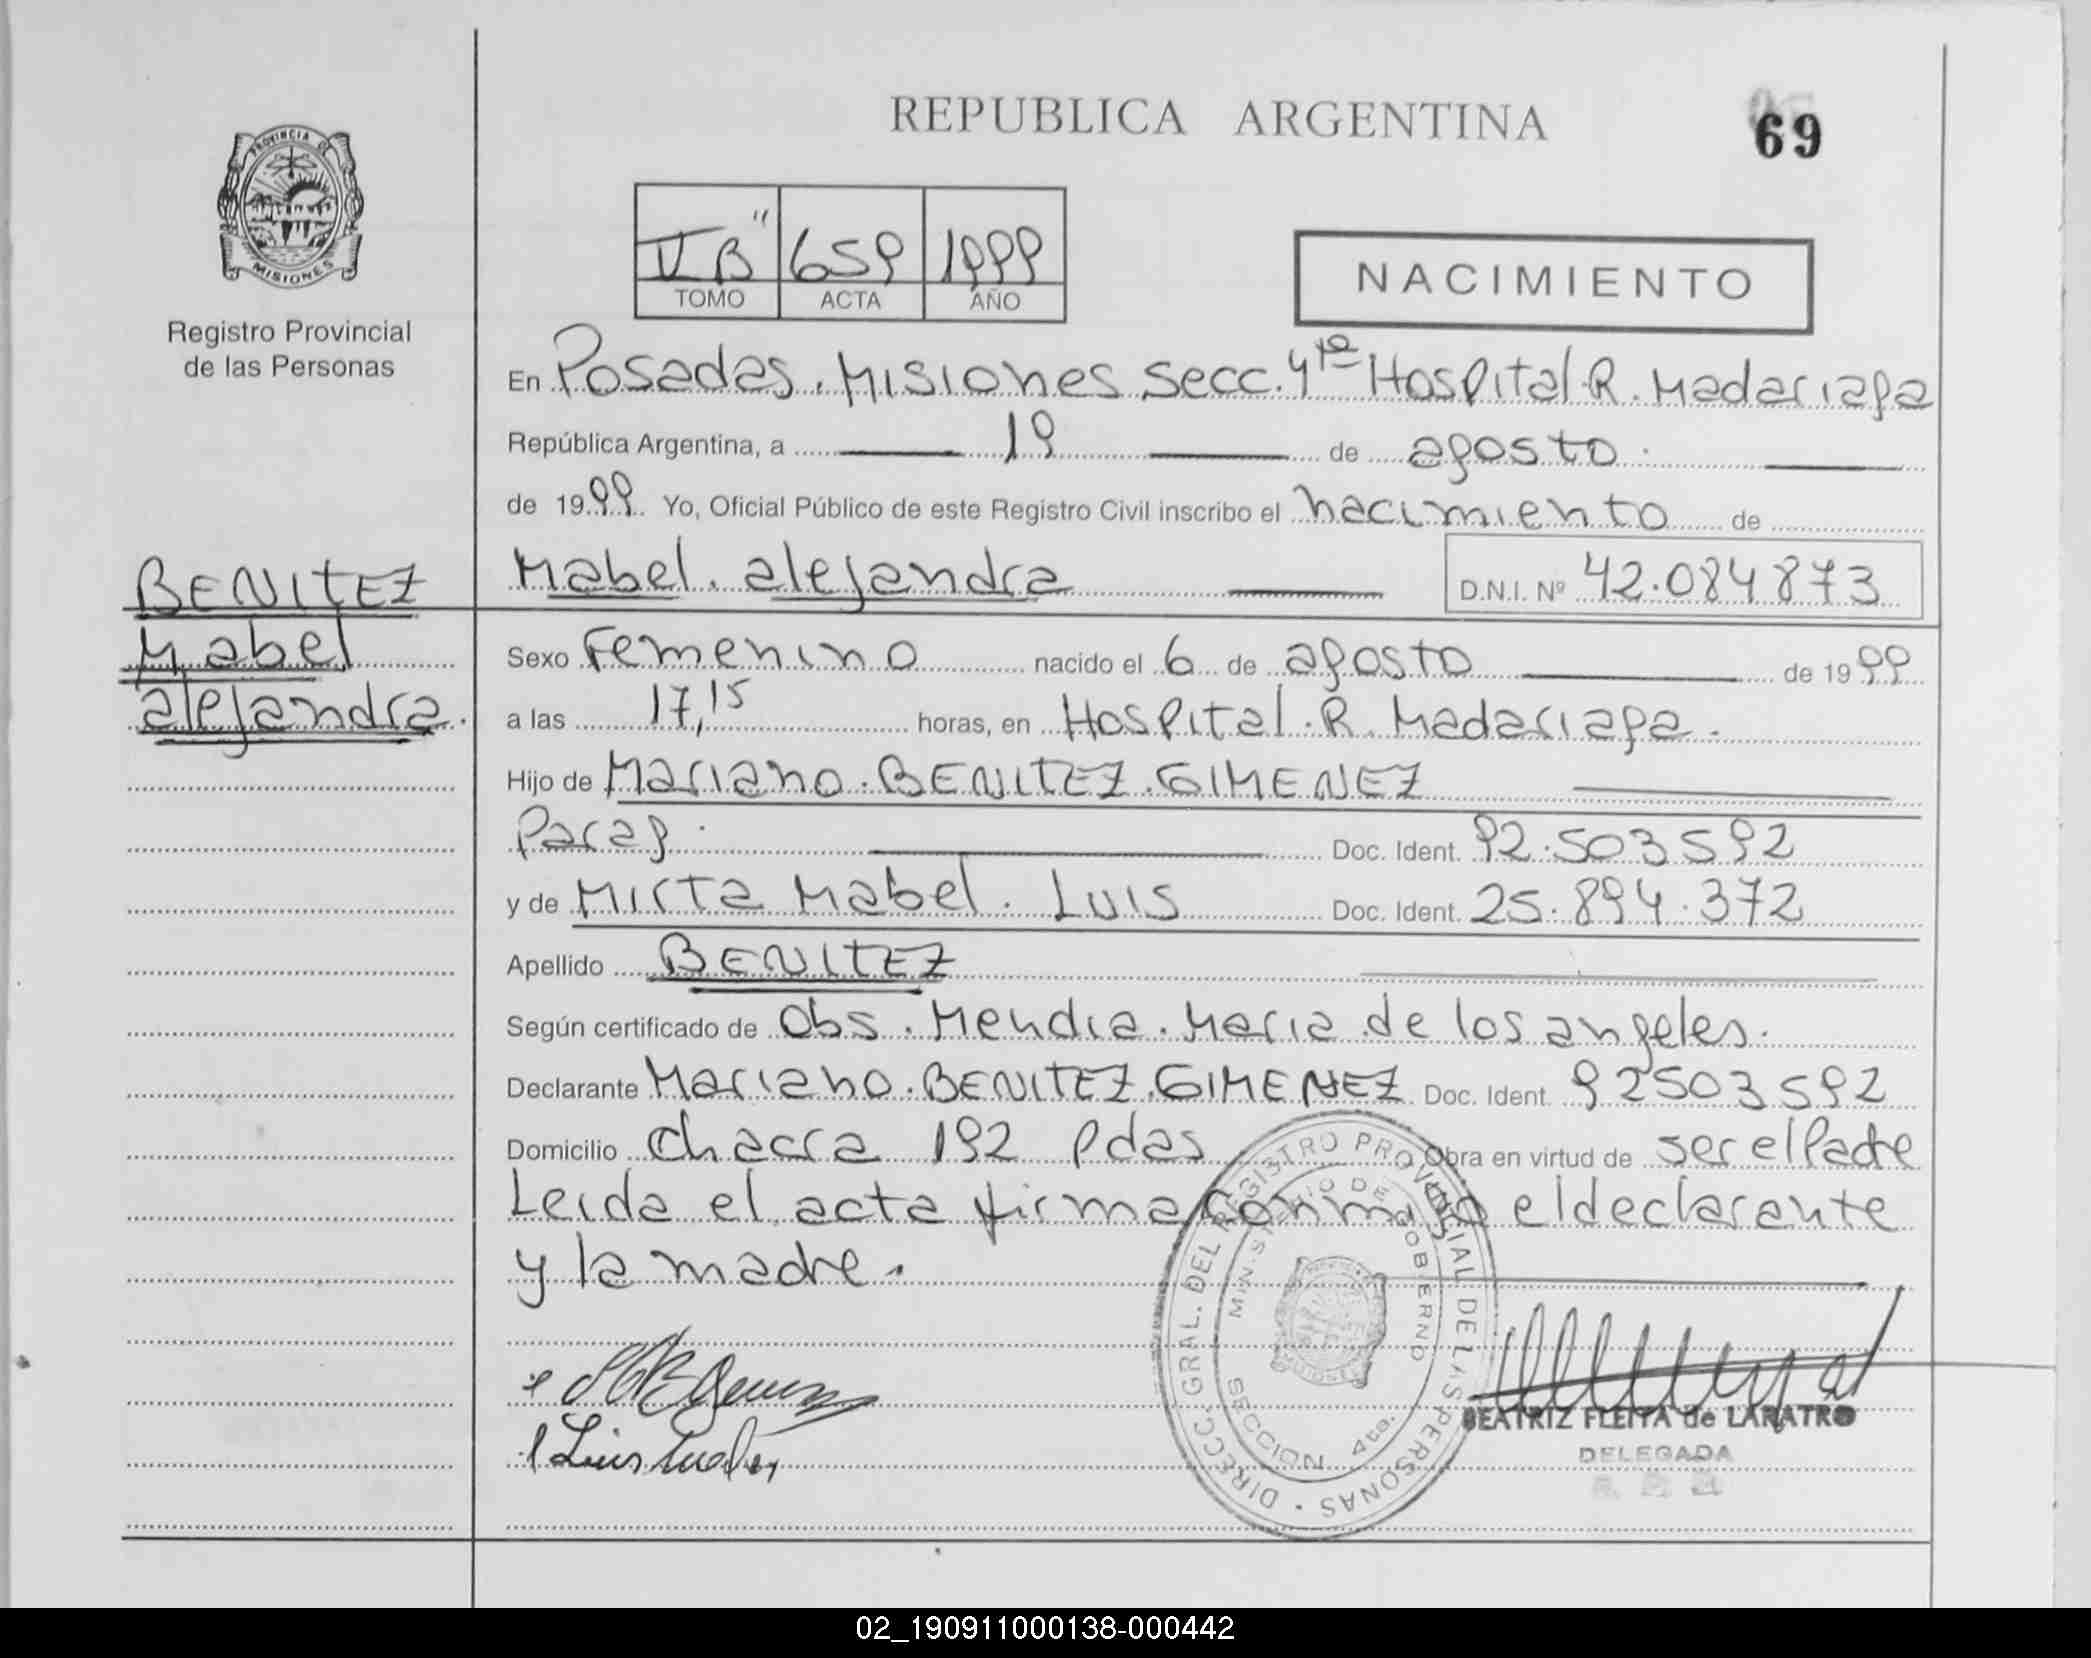 REPUBLICA ARGENTINA
69
PROVINCIA DE
MISIONES
Registro Provincial
de las Personas
II "B" 659 1999
TOMO ACTA AÑO
NACIMIENTO
En Posadas. Misiones secc. 4ta Hospital R. Madariaga
República Argentina, a 19 de agosto.
de 1999. Yo, Oficial Público de este Registro Civil inscribo el nacimiento de
Mabel. alejandra D.N.I. Nº 42.084873
BENITEZ
Mabel
alejandra.
Sexo Femenino nacido el 6 de agosto de 1999
a las 17,15 horas, en Hospital. R. Madariaga.
Hijo de Mariano. BENITEZ. GIMENEZ
Parag. Doc. Ident. 92.503592
y de Mirta Mabel. LUIS Doc. Ident. 25.894.372
Apellido BENITEZ
Según certificado de Obs. Mendia. Maria de los angeles.
Declarante Mariano. BENITEZ. GIMENEZ Doc. Ident. 92503592
Domicilio chacra 192 Pdas Obra en virtud de ser el Padre
Leida el acta firma conmigo el declarante
y la madre.
DIRECC. GRAL. DEL REGISTRO PROVINCIAL DE LAS PERSONAS
MINISTERIO DE GOBIERNO
SECCION 4ta.
BEATRIZ FLEITA de LARATRO
DELEGADA
02_190911000138-000442